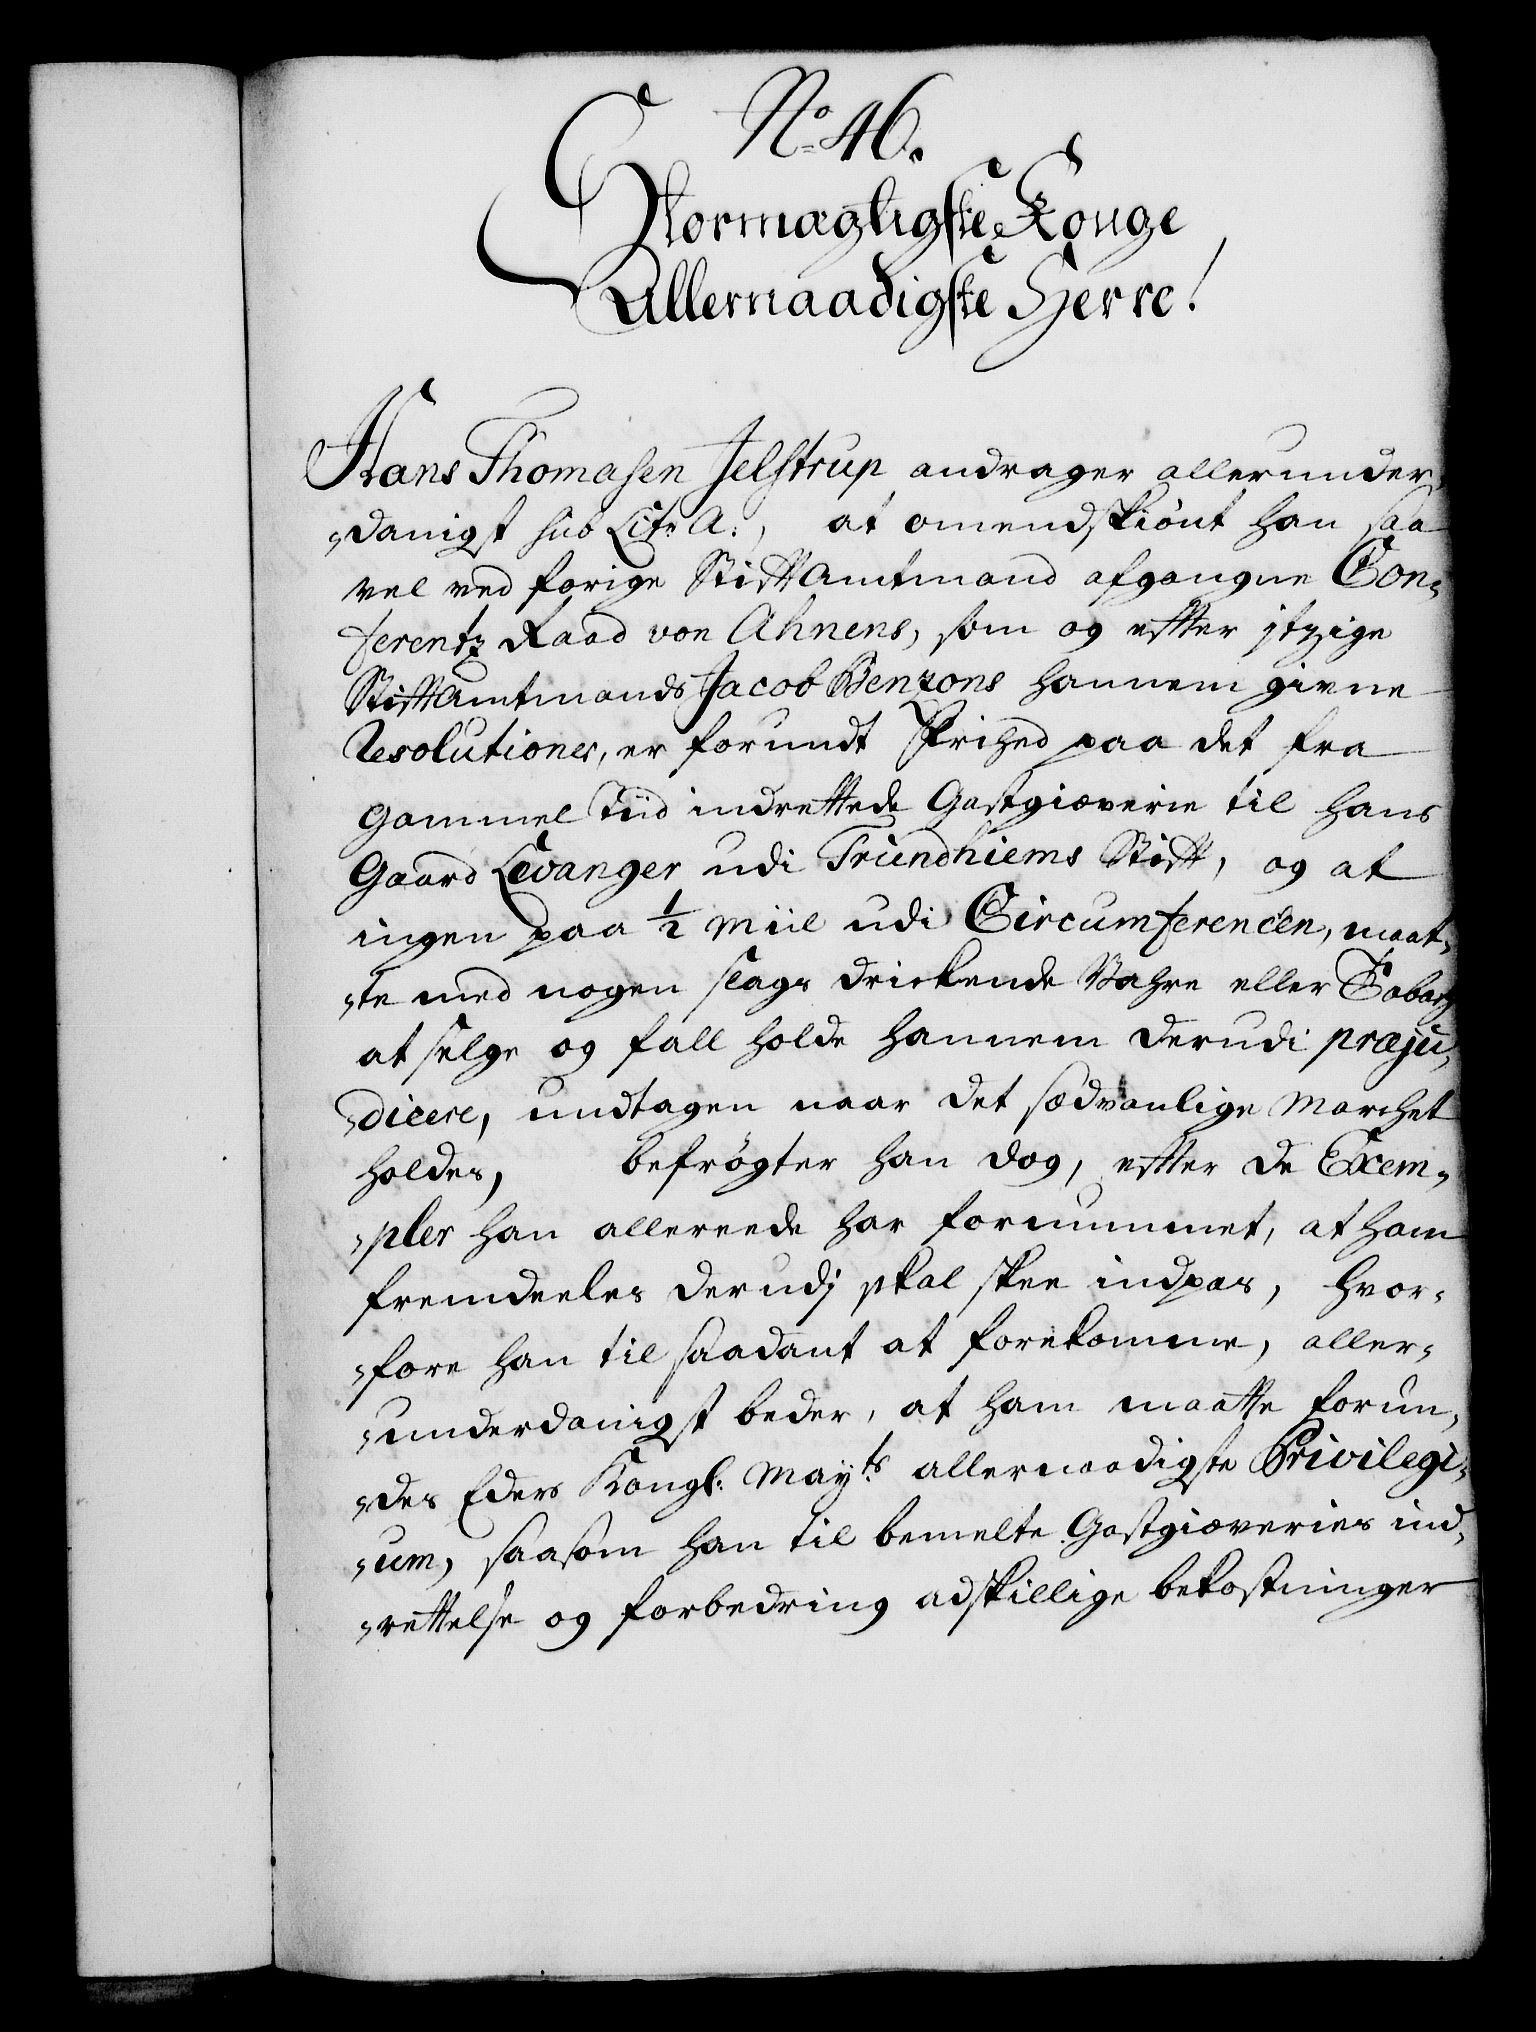 No. 46.
Stormægtigste Konge
Allernaadigste Herre!
Hans Thomasen Jelstrup andrager allerunder-
danigst sub Litr. A., at omendskiönt han saa
vel ved forige Stifftamtmand afgangne Con-
ferentz Raad von Ahnens, som og effter itzige
Stifftamtmands Jacob Benzons hannem givne
Resolutioner, er forundt Friihed paa det fra
gammel Tiid indrettede Gastgiæverie til hans
Gaard Levanger udi Trundhiems Stifft, og at
ingen paa 1/2 Miil udi Circumferencen, maat-
te med nogen slags drickende Vahre eller Toback
at selge og fall holde hannem derudi præju-
dicere, undtagen naar det sædvanlige Marchet
holdes, befrögter han dog, effter de Exem-
pler han allereede har fornummet, at ham
fremdeeles derudj skal skee indpas, hvor-
fore han til saadant at forekomme, aller-
underdanigst beder, at ham maatte forun-
des Eders Kongl: Mayts. allernaadigste Privilegi-
um, saasom han til bemelte Gastgiæveries ind-
rettelse og forbedring adskillige bekostninger